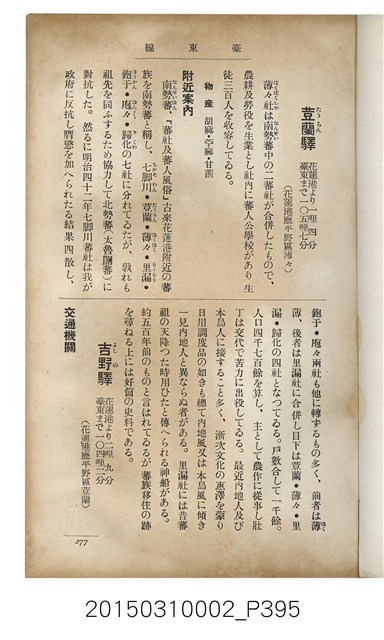 臺東線
荳蘭驛
花蓮港より一哩四分
臺東まで一〇五哩七分
(花蓮港廳平野區薄々)
薄々社は南勢蕃中の二蕃社が合併したもので、
農耕及勞役を生業とし社内に蕃人公學校があり生
徒三百人を收容してゐる。
物産 胡麻・苧麻・甘蔗
附近案内
南勢蕃、「蕃社及蕃人風俗」古來花蓮港附近の蕃
族を南勢蕃と稱し、七脚川・荳蘭・薄々・里漏・
鉋于・庖々・歸化の七社に分れてゐたが、孰れも
祖先を同ふするため協力して北勢蕃(太魯閣蕃)に
對抗した。然るに明治四十二年七脚川蕃社は我が
政府に反抗し膺懲を加へられたる結果四散し、
鉋于・庖々兩社も他に轉ずるもの多く、前者は薄
薄、後者は里漏社に合併し目下は荳蘭・薄々・里
漏・歸化の四社となつてゐる。戸數合して一千餘。
人口四千七百餘を算し、主として農作に從事し壯
丁は交代で苦力に出役してゐる。最近内地人及び
本島人に接すること多く、漸次文化の惠澤を蒙り
日用調度品の如きも總て内地風又は本島風に傾き
一見内地人と異ならぬ者がある。里漏社には昔蕃
祖の天降つた時用ひたと傳へられる神船がある。
約五百年前のものと言はれてゐるが蕃族移住の跡
を尋ねる上には好箇の史料である。
吉野驛
花蓮港より二哩九分
臺東まで一〇四哩二分
(花蓮港廳平野區荳蘭)
交通機關
277
20150310002_P395